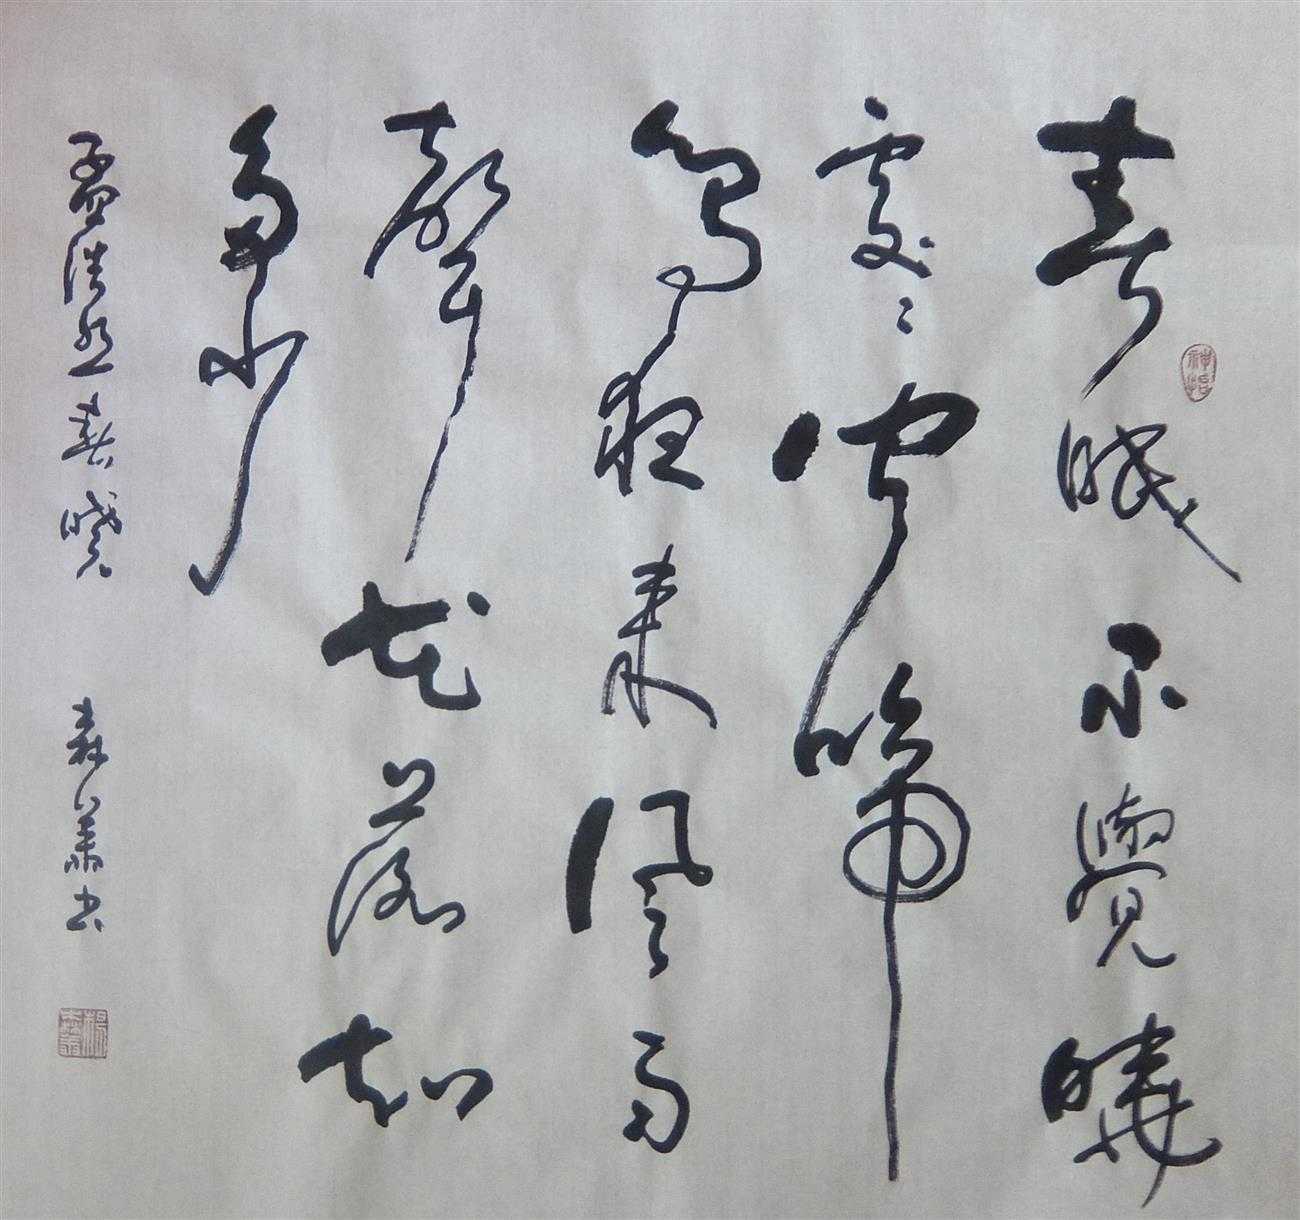 春眠不覺曉
處々聞啼
鳥夜來風雨
聲花落知
多少
孟浩然春曉 森華书